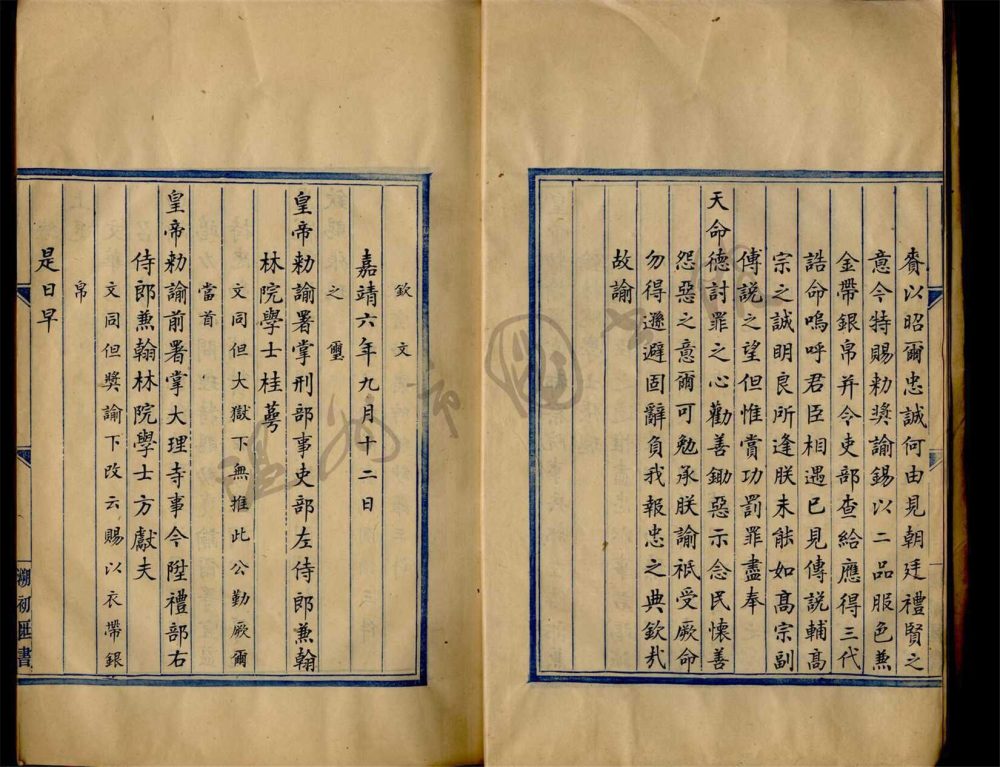 賚以昭爾忠誠何由見朝廷禮賢之
意今特賜勅獎諭錫以二品服色兼
金帶銀帛并令吏部查給應得三代
誥命嗚呼君臣相遇已見傳說輔高
宗之誠明良所逢朕未能如高宗副
傳說之望但惟賞功罰罪盡奉
天命德討罪之心勸善鋤惡示念民懷善
怨惡之意爾可勉承朕諭祇受厥命
勿得遜避固辭負我報忠之典欽哉
故諭
欽文
之璽
嘉靖六年九月十二日
皇帝勅諭署掌刑部事吏部左侍郎兼翰
林院學士桂萼
文同但大獄下無推此公勤厥爾
當首
皇帝勅諭前署掌大理寺事今陞禮部右
侍郎兼翰林院學士方獻夫
文同但獎諭下改云賜以衣帶銀
帛
是日早
溯初匯書
溫州市圖